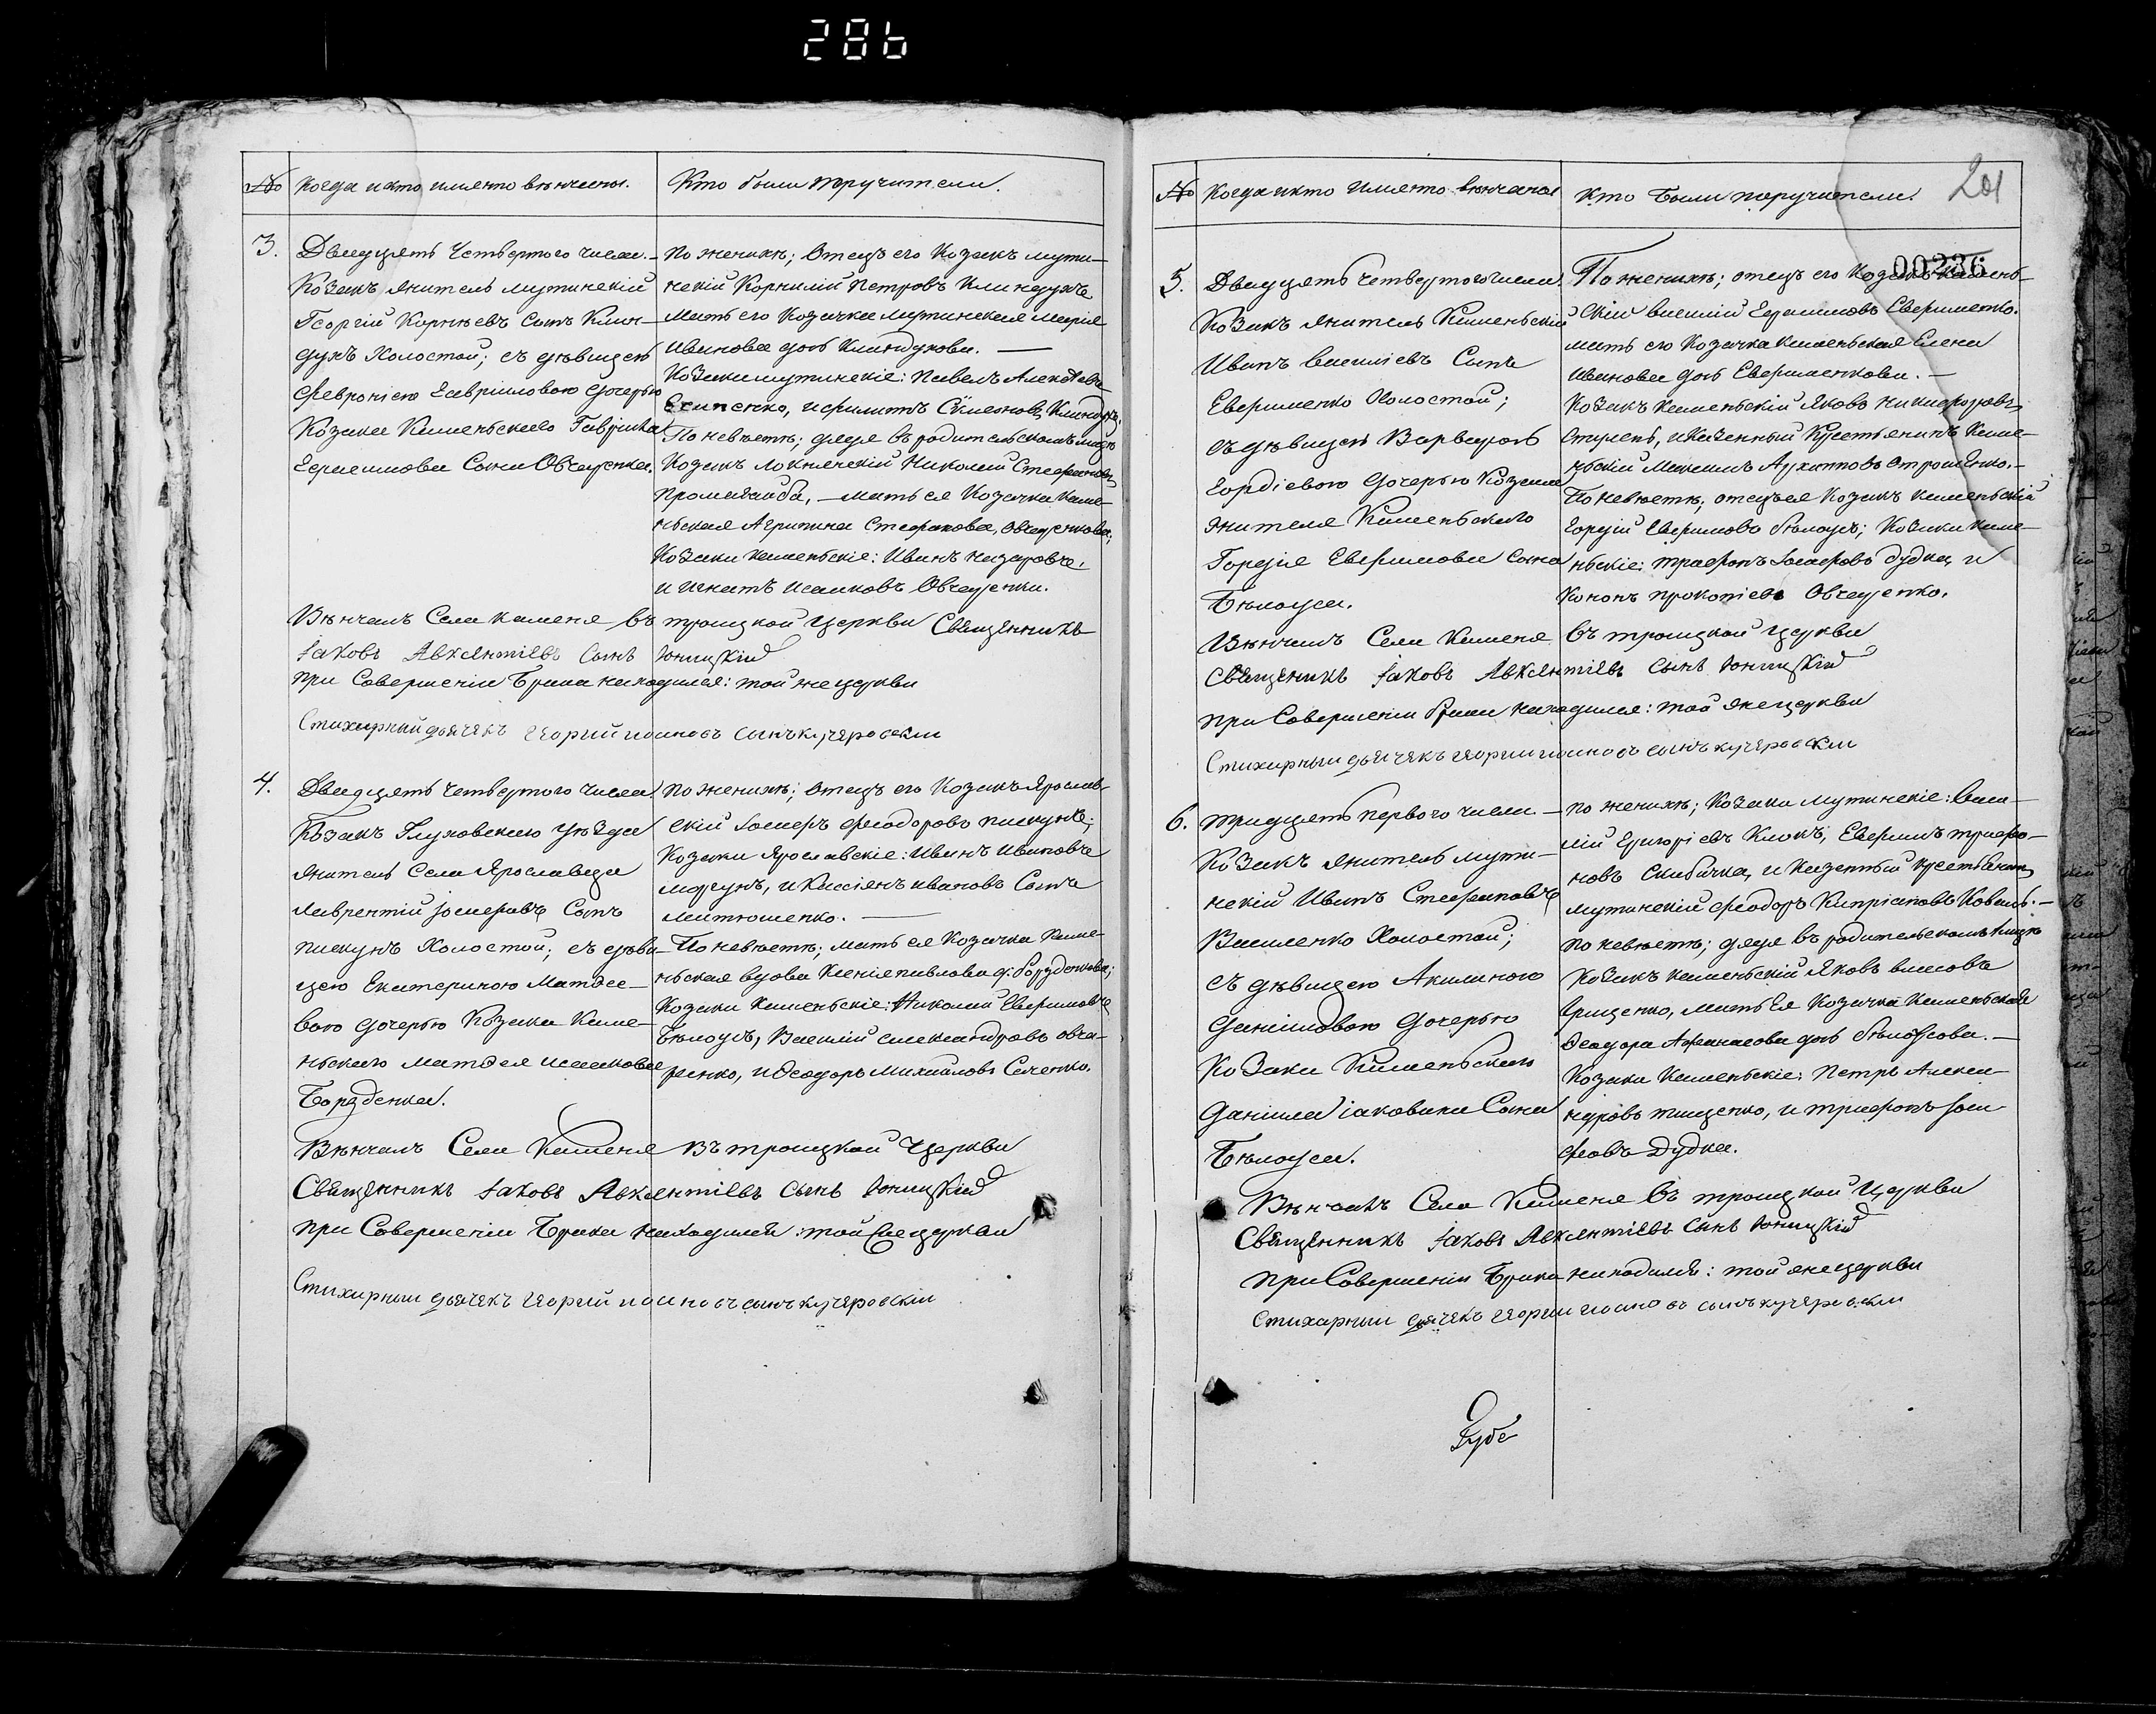 286
№ Когда и кто именно венчаны.
Кто были поручители.
3. Двадцять Четвертого числа.
Козакъ житель мутинскій
Георгій Корнѣевъ Сынъ Клин-
духъ Холостой; съ дѣвицею
Февроніею Гавріиловою дочерью
Козака Каменьскаго Гавріила
Герасимова Сына Овчаренка.
по женихѣ; Отецъ его Козакъ мути-
нскій Корнилій Петровъ Клиндухъ
мать его Козачка мутинская Марія
Иванова дочь Клиндухова.
Козаки мутинскіе: Павелъ Алексѣевъ
Есипенко, и Филипъ Сумеоновъ Клиндухъ,
По невѣстѣ; дядя въ родительскомъ мѣстѣ
Козакъ Николай Стефановъ
мать ея Козачка Каме-
ньская Агрипина Стефанова Овчаренкова;
Козаки каменьскіе: Иванъ Назаровъ,
и Игнатъ Исааковъ Овчаренки.
Вѣнчалъ Села Каменя въ троицкой Церкви Священникъ
Іаковъ Авксентіевъ Сынъ Юницкій
при Совершеніи Брака находился: той же церкви
Стихарный дьячекъ Георгий иоановъ сынъ кучеровский
4. Двадцять Четвертого числа.
Козакъ Глуховскаго уѣзда
житель Села Ярославца
Лаврентій Іосифовъ Сынъ
пискунъ Холостой; съ дѣви-
цею Екатериною Матѳее-
вою дочерью Козака Каме-
ньскаго Матѳея Исаакова
Борзденка.
по женихѣ; Отецъ его Козакъ Ярослав-
скій Іосифъ Феодоровъ пискунъ;
Козаки Ярославскіе: Иванъ Ивановъ
моргунъ, и Кассіянъ ивановъ Сынъ
Митюшенко.
По невѣстѣ; мать ея Козачка Каме-
ньская вдова Ксенія павлова д. Борзденкова;
Козаки Каменьскіе: Николай Евфимовъ
Бѣлоусъ, Василій Александровъ овча-
ренко, и Ѳеодоръ Михайловъ Саченко.
Вѣнчалъ Села Каменя въ троицкой Церкви
Священникъ Іаковъ Авксентіевъ Сынъ Юницкій
при Совершеніи Брака находился: той же церкви
Стихарный дьячекъ Георгий иоановъ сынъ кучеровский
201
00236
№ Когда и кто именно венчаны
Кто были поручители.
5. Двадцять четвертого числа.
Козакъ житель Каменьскій
Иванъ Василіевъ Сынъ
Евфименко Холостой;
съ дѣвицею Варварою
Гордіевою дочерью Козака
жителя Каменьскаго
Гордія Евфимова Сына
Бѣлоуса.
По женихѣ; отецъ его Козакъ камень-
скій василій Герасимовъ Евфименко.
мать его Козачка каменьская Елена
Иванова дочь Евфименкова.
Козакъ каменьскій Яковъ Никифоровъ
и Казенный Крестьянинъ Каме-
ньскій Максимъ Архиповъ
По невѣстѣ, отецъ ея Козакъ каменьскій
Гордій Евфимовъ бѣлоусъ; Козаки каме-
ньскіе: трифонъ Іосифовъ дудка, и
Кононъ прокопіевъ Овчаренко.
Вѣнчалъ Села Каменя въ троицкой церкви
Священникъ Іаковъ Авксентіевъ Сынъ Юницкій
при Совершеніи брака находился: той же церкви
Стихарный дьячекъ Георгий иоановъ сынъ кучеровский
6. тридцять первого числа.
Козакъ житель мути-
нскій Иванъ Стефановъ
Василенко Холостой;
съ дѣвицею Акилиною
Даніиловою дочерью
Козака Каменьскаго
Даніила Іаковлева Сына
Бѣлоуса.
по женихѣ; Козаки мутинскіе: Васи-
лій Григоріевъ Клокъ, Евфимъ трифо-
новъ Скибичка, и Казенный крестьянинъ
мутинскій Феодоръ Кипріановъ Коваль.
по невѣстѣ; дядя въ родительскомъ мѣстѣ
Козакъ каменьскій Яковъ власовъ
Грищенко, мать Ея Козачка Каменьская
Ѳеодора Афанасова дочь бѣлоусова.
Козаки Каменьскіе: Петръ Алекса-
ндровъ тищенко, и трифонъ Іоси-
фовъ Дудка.
Вѣнчалъ Села Каменя въ троицкой Церкви
Священникъ Іаковъ Авксентіевъ Сынъ Юницкій
при Совершеніи Брака находился: той же церкви
Стихарный дьячекъ Георгий иоановъ сынъ кучеровский